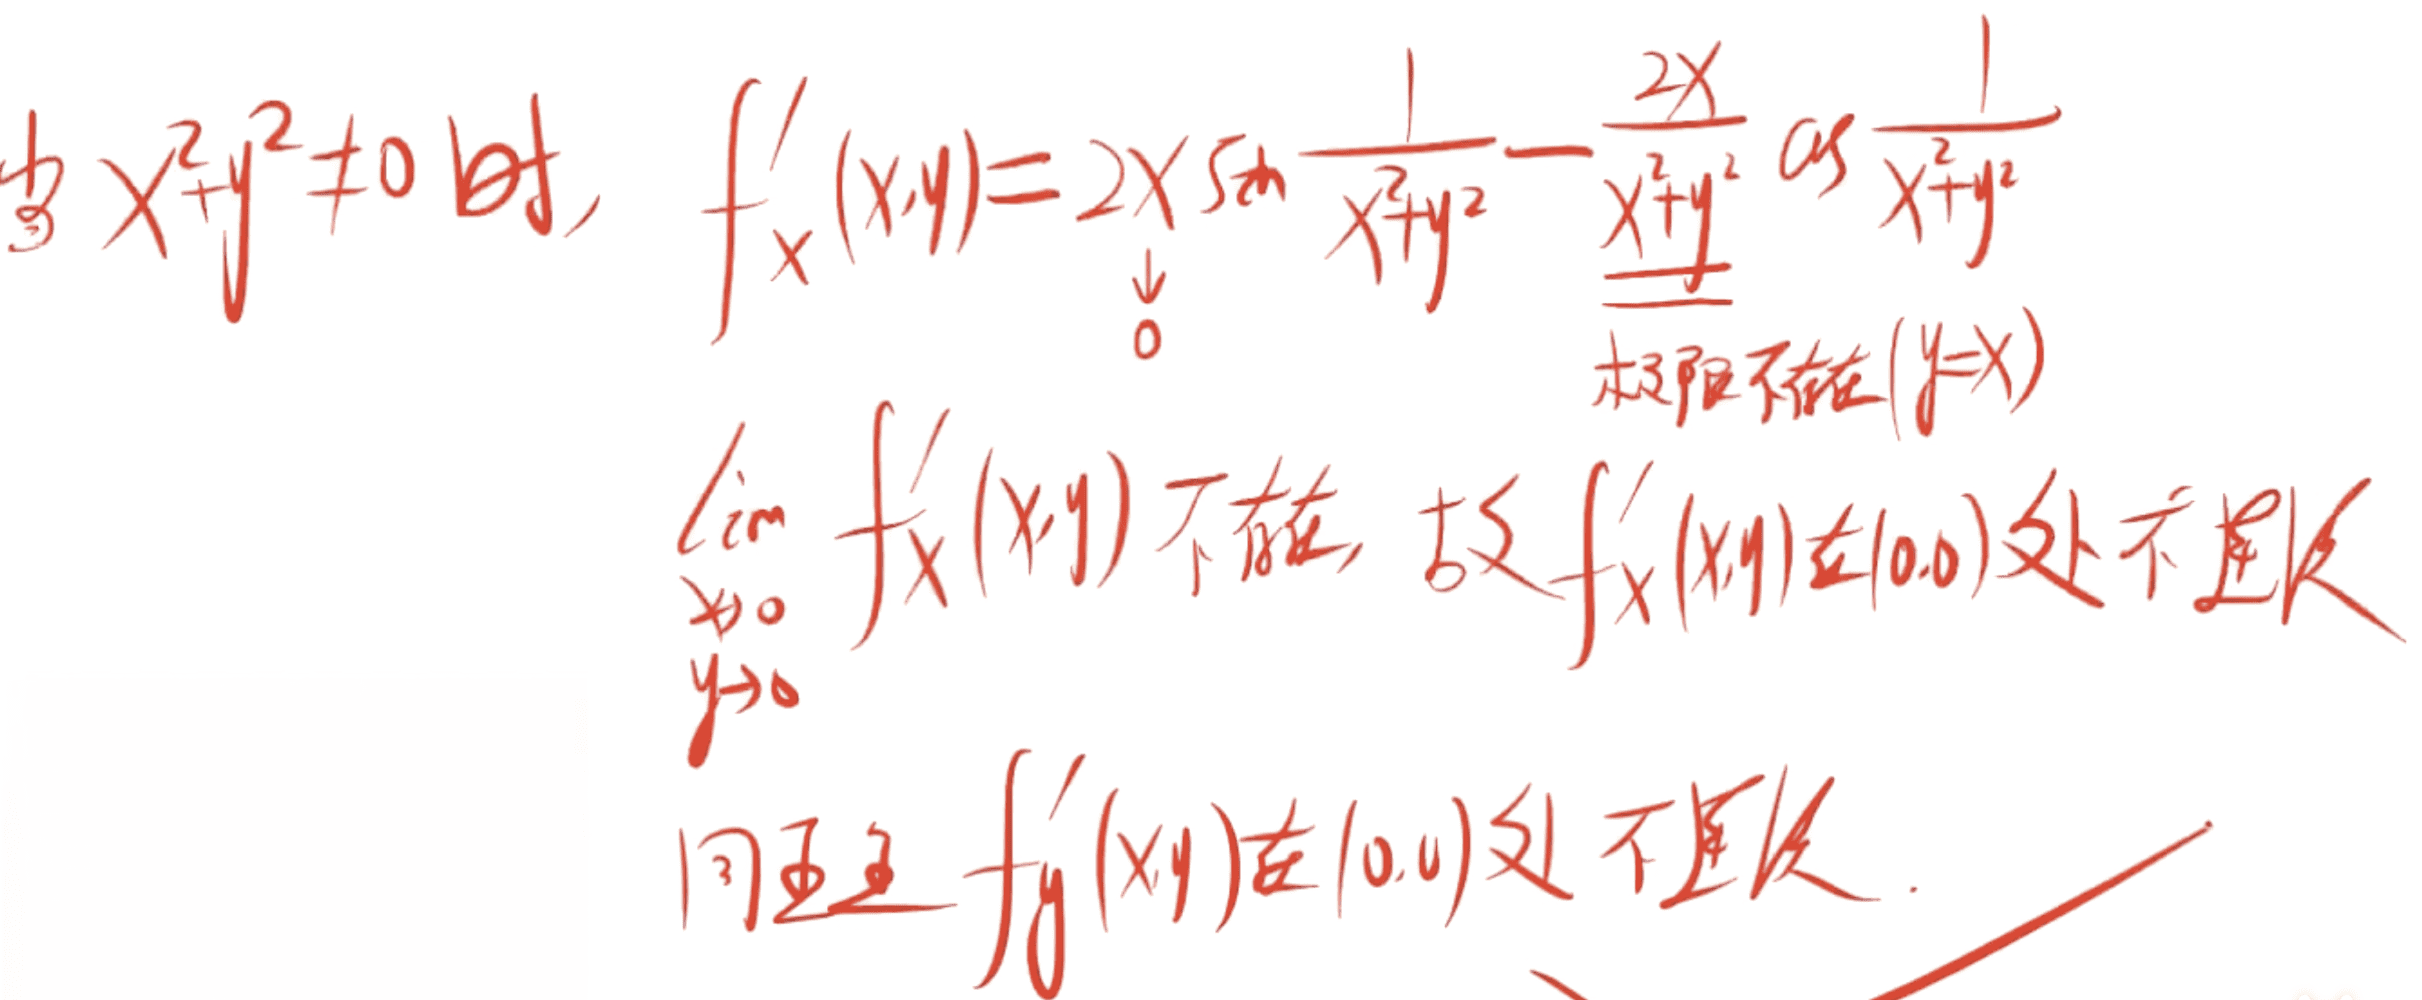 当 x²+y²≠0 时, f'x(x,y)=2x sin 1/(x²+y²) − 2x/(x²+y²) cos 1/(x²+y²)
↓
0
极限不存在(y=x)
lim f'x(x,y) 不存在, 故 f'x(x,y) 在(0,0)处不连续
x→0
y→0
同理 f'y(x,y) 在(0,0)处不连续.